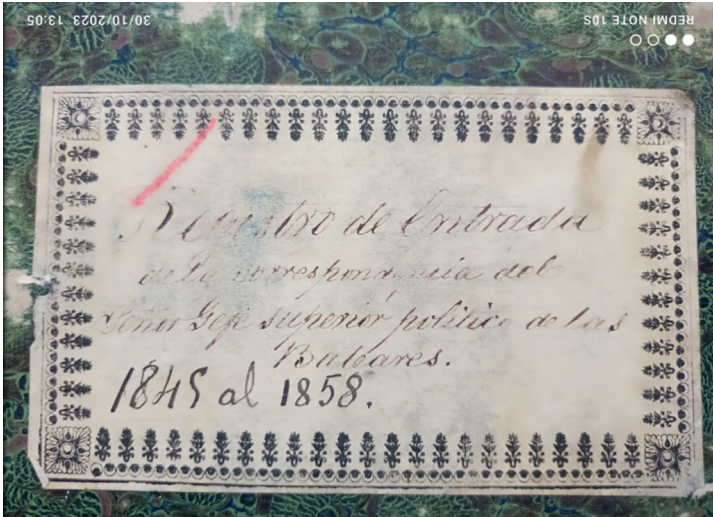 30/10/2023 13:05
REDMI NOTE 10S
Registro de Entrada
de la correspondencia del
Señor Gefe superior politico de las
Baleares.
1845 al 1858.